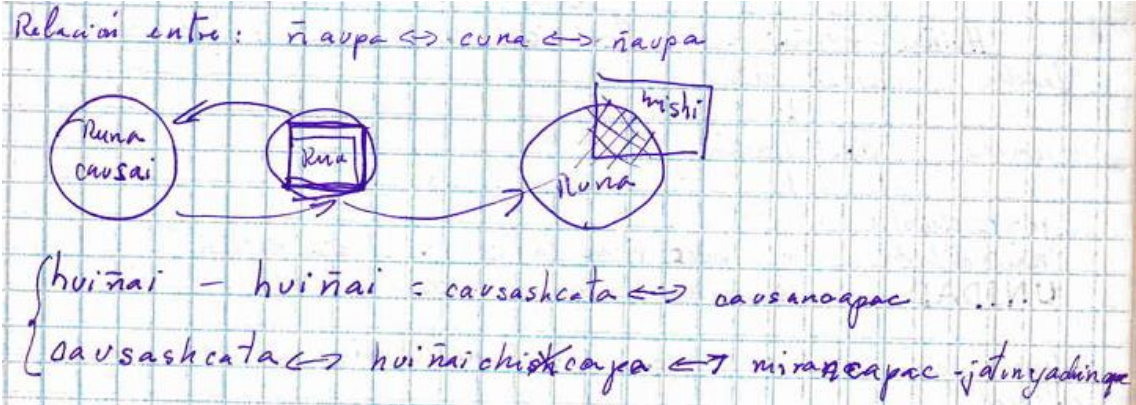 Relación entre: ñaupa <=> cuna <=> ñaupa
mishi
Runa
causai
Runa
Runa
huiñai - huiñai = causashcata <=> causangapac ....
causashcata <=> huiñaichishcapa <=> mirangapac -jatunyachingapa